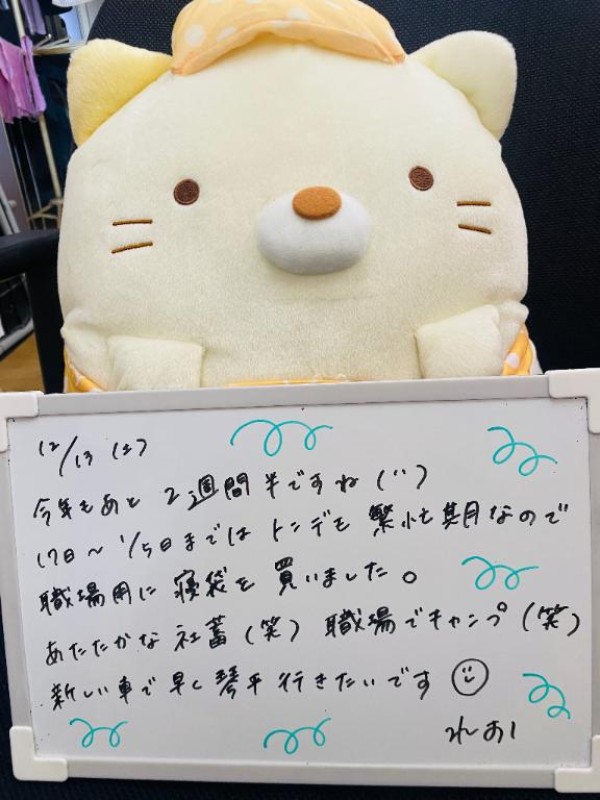 12/13 (土)
今年もあと 2週間半ですね (¨)
17日〜1/5日までは トンデモ 繁忙期なので
職場用に 寝袋を 買いました。
あたたかな 社蓄 (笑) 職場でキャンプ (笑)
新しい車で 早く 琴平 行きたいです